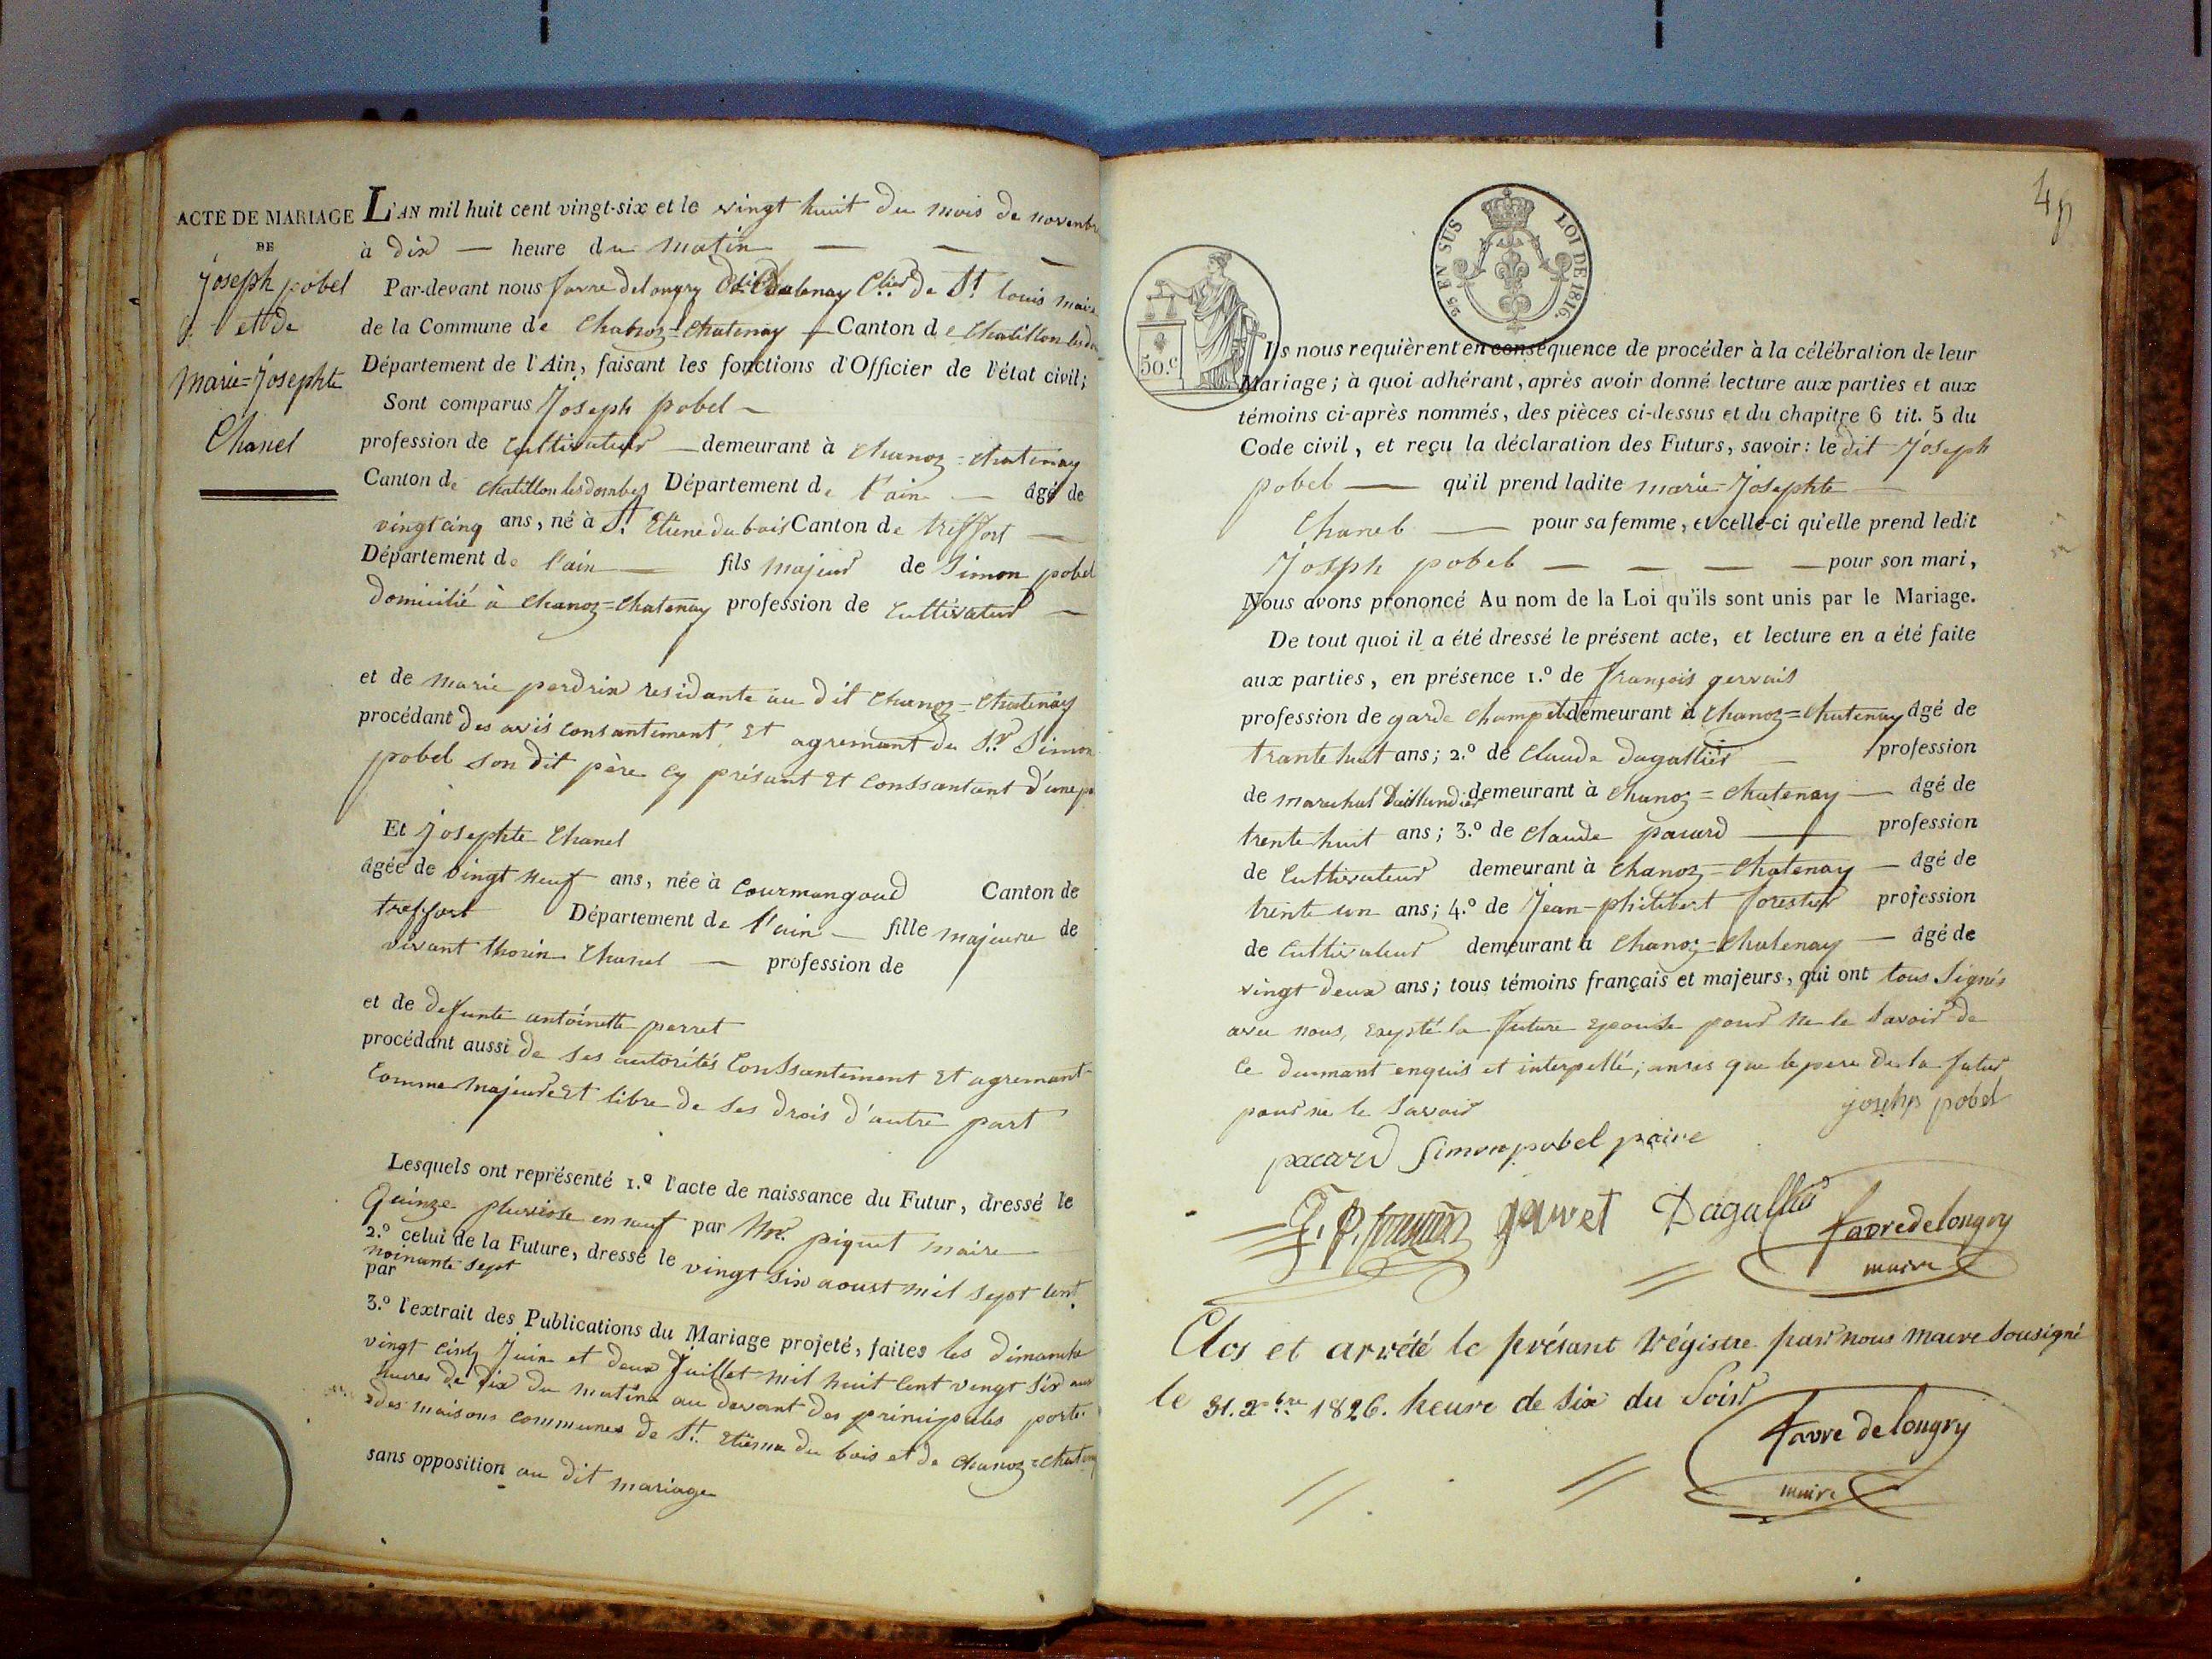 ACTE DE MARIAGE
DE
Joseph pobel
et de
marie=Josephte
Chanel
L'AN mil huit cent vingt-six et le vingt huit du mois de novembre
à dix — heure du matin — — —
Par-devant nous favre delongry Chatenay Clier de St. Louis maire
de la Commune de Chanoz=Chatenay — Canton de Chatillon les
Département de l'Ain, faisant les fonctions d'Officier de l'état civil;
Sont comparus Joseph pobel —
profession de Cultivateur — demeurant à Chanoz=Chatenay
Canton de chatillon les dombes Département de l'ain — âgé de
vingt cinq ans, né à St. Etiene du bois Canton de treffort —
Département de l'ain — fils majeur de Simon pobel
domicilié à Chanoz=Chatenay profession de Cultivateur —
et de marie perdrix residante au dit Chanoz=Chatenay
procédant des avis consantement et agremant du Sr. Simon
pobel son dit père cy présant et conssantant d'une
Et Josephte Chanel
âgée de vingt neuf ans, née à Courmangoud Canton de
treffort Département de l'ain — fille majeure de
vivant thorin Chanel — profession de
et de defunte antoinette perret
procédant aussi de ses autorités Conssantement et agremant
Comme majeure et libre de ses drois d'autre part
Lesquels ont représenté 1.º l'acte de naissance du Futur, dressé le
Quinze pluviose en neuf par Mr. piquet maire
2.º celui de la Future, dressé le vingt six aoust mil sept cent
noinante sept
par
3.º l'extrait des Publications du Mariage projeté, faites les dimanche
vingt cinq Juin et deux Juillet mil huit cent vingt six aux
heures de dix du matin au devant des principales porte
des maisons communes de St. Etienne du bois et de Chanoz=Chatenay
sans opposition au dit mariage
4
25 EN SUS LOI DE 1816.
50.c
Ils nous requièrent en conséquence de procéder à la célébration de leur
Mariage; à quoi adhérant, après avoir donné lecture aux parties et aux
témoins ci-après nommés, des pièces ci-dessus et du chapitre 6 tit. 5 du
Code civil, et reçu la déclaration des Futurs, savoir: le dit Joseph
pobel — qu'il prend ladite marie=Josephte —
Chanel — pour sa femme, et celle-ci qu'elle prend ledit
Josph pobel — — — — pour son mari,
Nous avons prononcé Au nom de la Loi qu'ils sont unis par le Mariage.
De tout quoi il a été dressé le présent acte, et lecture en a été faite
aux parties, en présence 1.º de françois gervais
profession de garde champetre demeurant à Chanoz=Chatenay âgé de
trante huit ans; 2.º de Claude dagallier — profession
de marechal taillandier demeurant à Chanoz=Chatenay — âgé de
trente huit ans; 3.º de Claude pacard — profession
de Cultivateur demeurant à Chanoz=Chatenay — âgé de
trente un ans; 4.º de Jean-philibert forestier profession
de Cultivateur demeurant à Chanoz=Chatenay — âgé de
vingt deux ans; tous témoins français et majeurs, qui ont tous signés
avec nous, exepté la future epouse pour ne le savoir de
ce dumant enquis et interpellé; que le pere de la futur
pour ne le savoir
josehp pobel
pacard Simon pobel paire
J. P. Dagallier favredelongry
maire
Clos et arrété le présant Régistre par nous maire sousigné
le 31. Xbre 1826. heure de six du Soir
favre delongry
maire